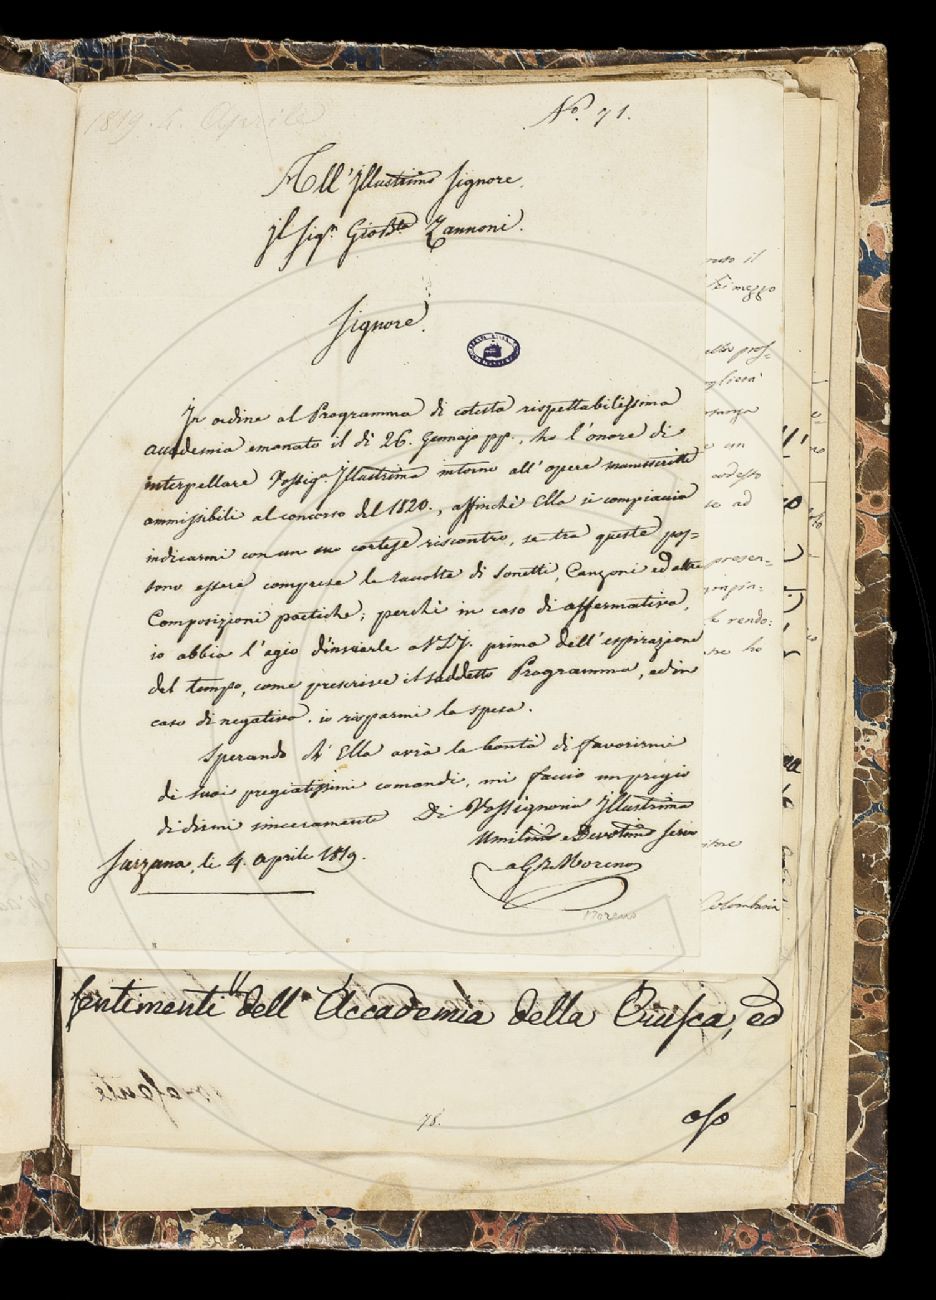 1819. 4. Aprile
N.º 71.
All'Illustrimo Signore.
Il Sigr. Gio Bta. Zannoni.
Signore.
In ordine al Programma di cotesta rispettabilissima
accademia emanato il dì 26. Gennajo pp., ho l'onore di
interpellare Vossiga. Illustrima intorno all'opere manuscritte
ammissibili al concorso del 1820., affinchè Ella si compiaccia
indicarmi con un suo cortese riscontro, se tra queste pos=
sono essere comprese le raccolte di Sonetti, Canzoni ed altre
Composizioni poetiche; perchè in caso di affermativa,
io abbia l'agio d'inviarle a V.S.I. prima dell'espirazione
del tempo, come prescrive il suddetto Programma, ed in
caso di negativa. io risparmi la spesa.
Sperando ch'Ella avrà la bontà di favorirmi
di suoi pregiatissimi comandi, mi faccio un pregio
di dirmi sinceramente Di Vossignoria Illustrima
Umilimo e Devotimo Servo
Sarzana, li 4. Aprile 1819.
a GB Moreno
Moreno
sentimenti dell'Accademia della Crusca, ed
78.